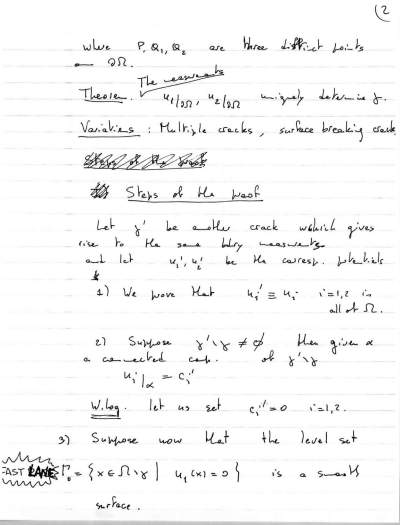 (2
where P, Q₁, Q₂ are three distinct points
on ∂Ω.
The measurements
Theorem. u₁|∂Ω, u₂|∂Ω uniquely determine γ.
Variations : Multiple cracks, surface breaking crack
Steps of the proof
Let γ' be another crack which gives
rise to the same bdry measurements
and let u₁', u₂' be the corresp. potentials
1) We prove that uᵢ' ≡ uᵢ i=1,2 in
all of Ω.
2) Suppose γ'\γ ≠ ∅ then given α
a connected comp. of γ'\γ
uᵢ'|α = cᵢ'
W.log. let us set cᵢ' = 0 i=1,2.
3) Suppose now that the level set
FAST LANE Γ₀ = {x ∈ Ω\γ | u₁(x) = 0} is a smooth
surface.